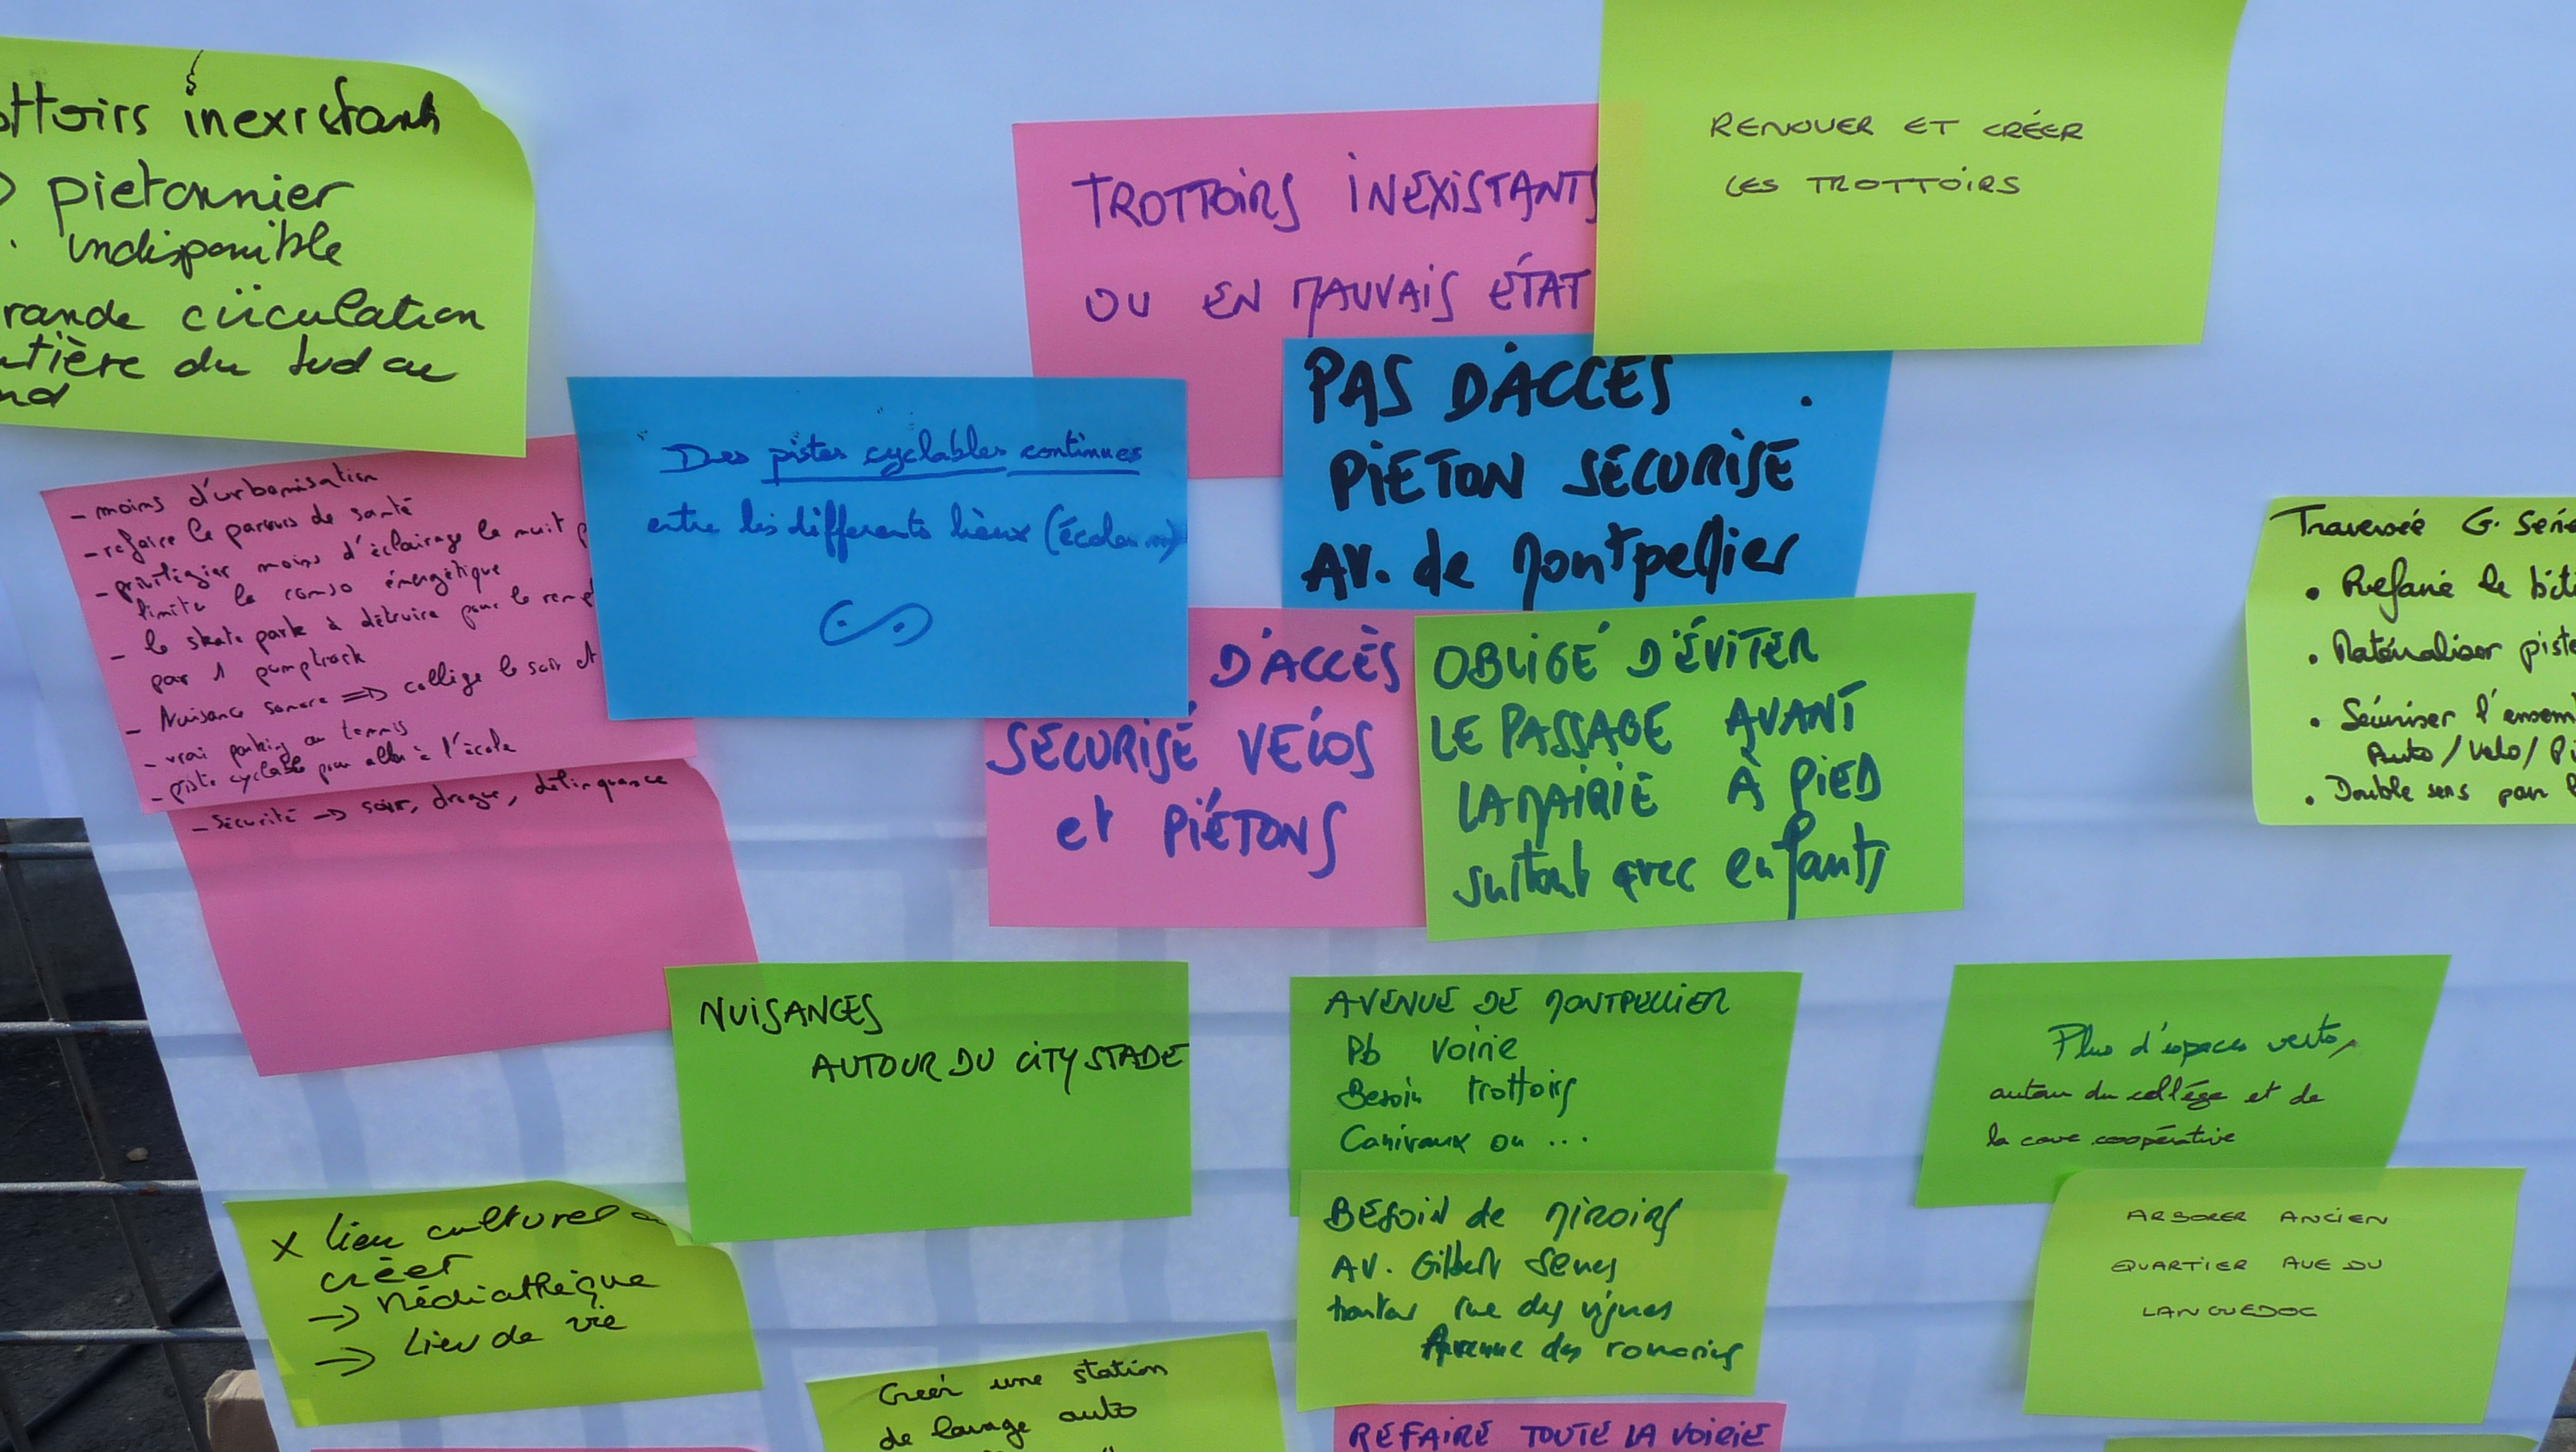 ottoirs inexistants
pietonnier
indisponible
rande circulation
utière du Sud au
nd
TROTTOIRS INEXISTANTS
OU EN MAUVAIS ÉTAT
RENOUER ET CRÉER
LES TROTTOIRS
Des pistes cyclables continues
entre les differents lieux (écoles
PAS D'ACCES
PIETON SÉCURISÉ
AV. de Montpellier
- moins d'urbanisation
- refaire le parcours de santé
- privilégier moins d'éclairage la nuit p
limiter la conso énergétique
- le skate park à détruire pour le rempl
par 1 pumptrack
- Nuisance sonore => collège le soir et
- vrai parking au tennis
- piste cyclable pour aller à l'école
- Sécurité -> soir, drogue, délinquance
D'ACCÈS
SÉCURISÉ VELOS
et PIÉTONS
OBLIGÉ D'ÉVITER
LE PASSAGE AVANT
LA MAIRIE À PIED
surtout avec enfants
Traversée G. Sene
• Refaire le bit
• Matérialiser piste
• Sécuriser l'ensem
Auto / Velo / Pi
• Double sens pour l
NUISANCES
AUTOUR DU CITY STADE
AVENUE DE MONTPELLIER
Pb Voirie
Besoin trottoirs
Canivaux ou ...
Plus d'espaces verts,
autour du collége et de
la cave coopérative
X lieu culturel a
créer
-> Médiathèque
-> Lieu de vie
BESOIN de MIROIRS
AV. Gilbert Senes
rue des vignes
Avenue des romarins
ARBORER ANCIEN
QUARTIER AVE DU
LANGUEDOC
Creér une station
de lavage auto
REFAIRE TOUTE LA VOIRIE